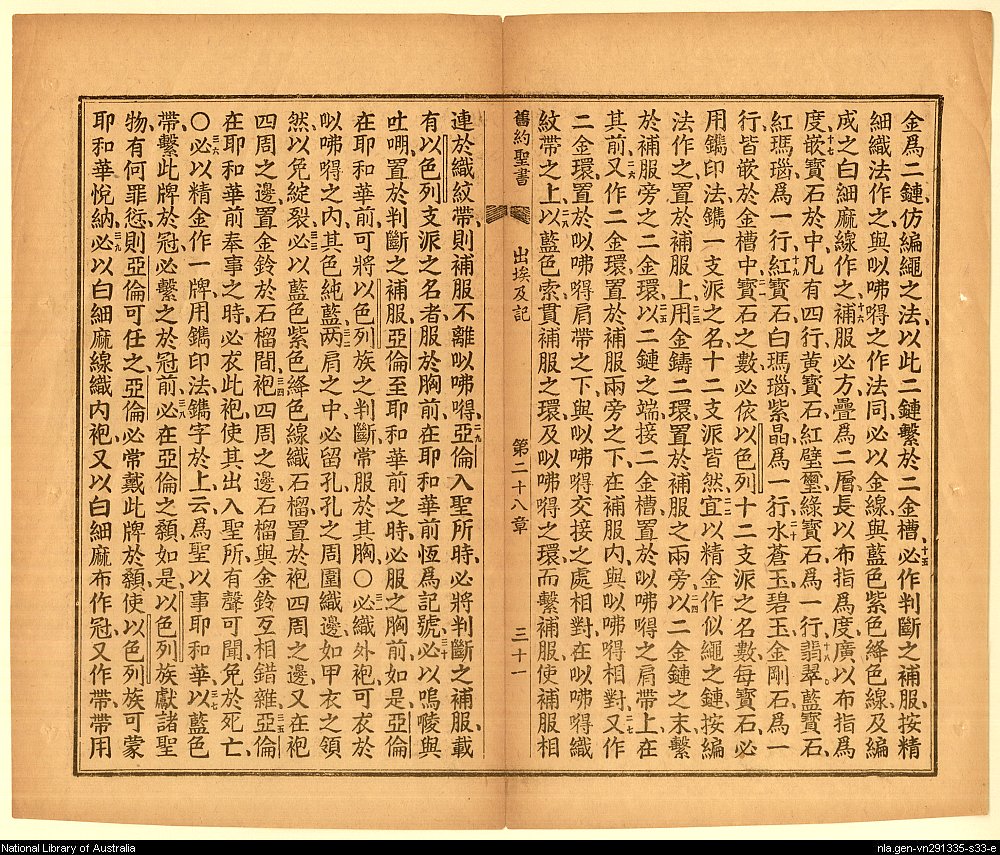 金爲二鏈、仿編繩之法、以此二鏈繫於二金槽、十五必作判斷之補服、按精
細織法作之、與㕥咈嘚之作法同、必以金線、與藍色紫色絳色線、及編
成之白細麻線作之、十六補服必方、疊爲二層、長以布指爲度、廣以布指爲
度、十七嵌寶石於中、凡有四行、黃寶石紅璧璽綠寶石爲一行、十八翡翠藍寶石
紅瑪瑙爲一行、十九紅寶石白瑪瑙紫晶爲一行、二十水蒼玉碧玉金剛石爲一
行、皆嵌於金槽中、二一寶石之數、必依以色列十二支派之名數、每寶石必
用鐫印法鐫一支派之名、十二支派皆然、二二宜以精金作似繩之鏈、按編
法作之、置於補服上、二三用金鑄二環、置於補服之兩旁、二四以二金鏈之末繫
於補服旁之二金環、二五以二鏈之端接二金槽、置於㕥咈嘚之肩帶上、在
其前、二六又作二金環、置於補服兩旁之下、在補服內、與㕥咈嘚相對、二七又作
二金環、置於㕥咈嘚肩帶之下、與㕥咈嘚交接之處相對、在㕥咈嘚織
紋帶之上、二八以藍色索貫補服之環、及㕥咈嘚之環而繫補服、使補服相
舊約聖書 出埃及記 第二十八章 三十一
連於織紋帶、則補服不離㕥咈嘚、二九亞倫入聖所時、必將判斷之補服、載
有以色列支派之名者、服於胸前、在耶和華前恆爲記號、三十必以嗚㖫與
吐嘣置於判斷之補服、亞倫至耶和華前之時、必服之胸前、如是、亞倫
在耶和華前、可將以色列族之判斷、常服於其胸、〇三一必織外袍、可衣於
㕥咈嘚之內、其色純藍、三二兩肩之中、必留孔、孔之周圍織邊、如甲衣之領
然、以免綻裂、三三必以藍色紫色絳色線織石榴、置於袍四周之邊、又在袍
四周之邊、置金鈴於石榴間、三四袍四周之邊、石榴與金鈴互相錯雜、三五亞倫
在耶和華前奉事之時、必衣此袍、使其出入聖所、有聲可聞、免於死亡、
〇三六必以精金作一牌、用鐫印法鐫字於上云、爲聖以事耶和華、三七以藍色
帶、繫此牌於冠、必繫之於冠前、三八必在亞倫之額、如是、以色列族獻諸聖
物、有何罪愆、則亞倫可任之、亞倫必常戴此牌於額、使以色列族可蒙
耶和華悅納、三九必以白細麻線織內袍、又以白細麻布作冠、又作帶、帶用
National Library of Australia
nla.gen-vn291335-s33-e